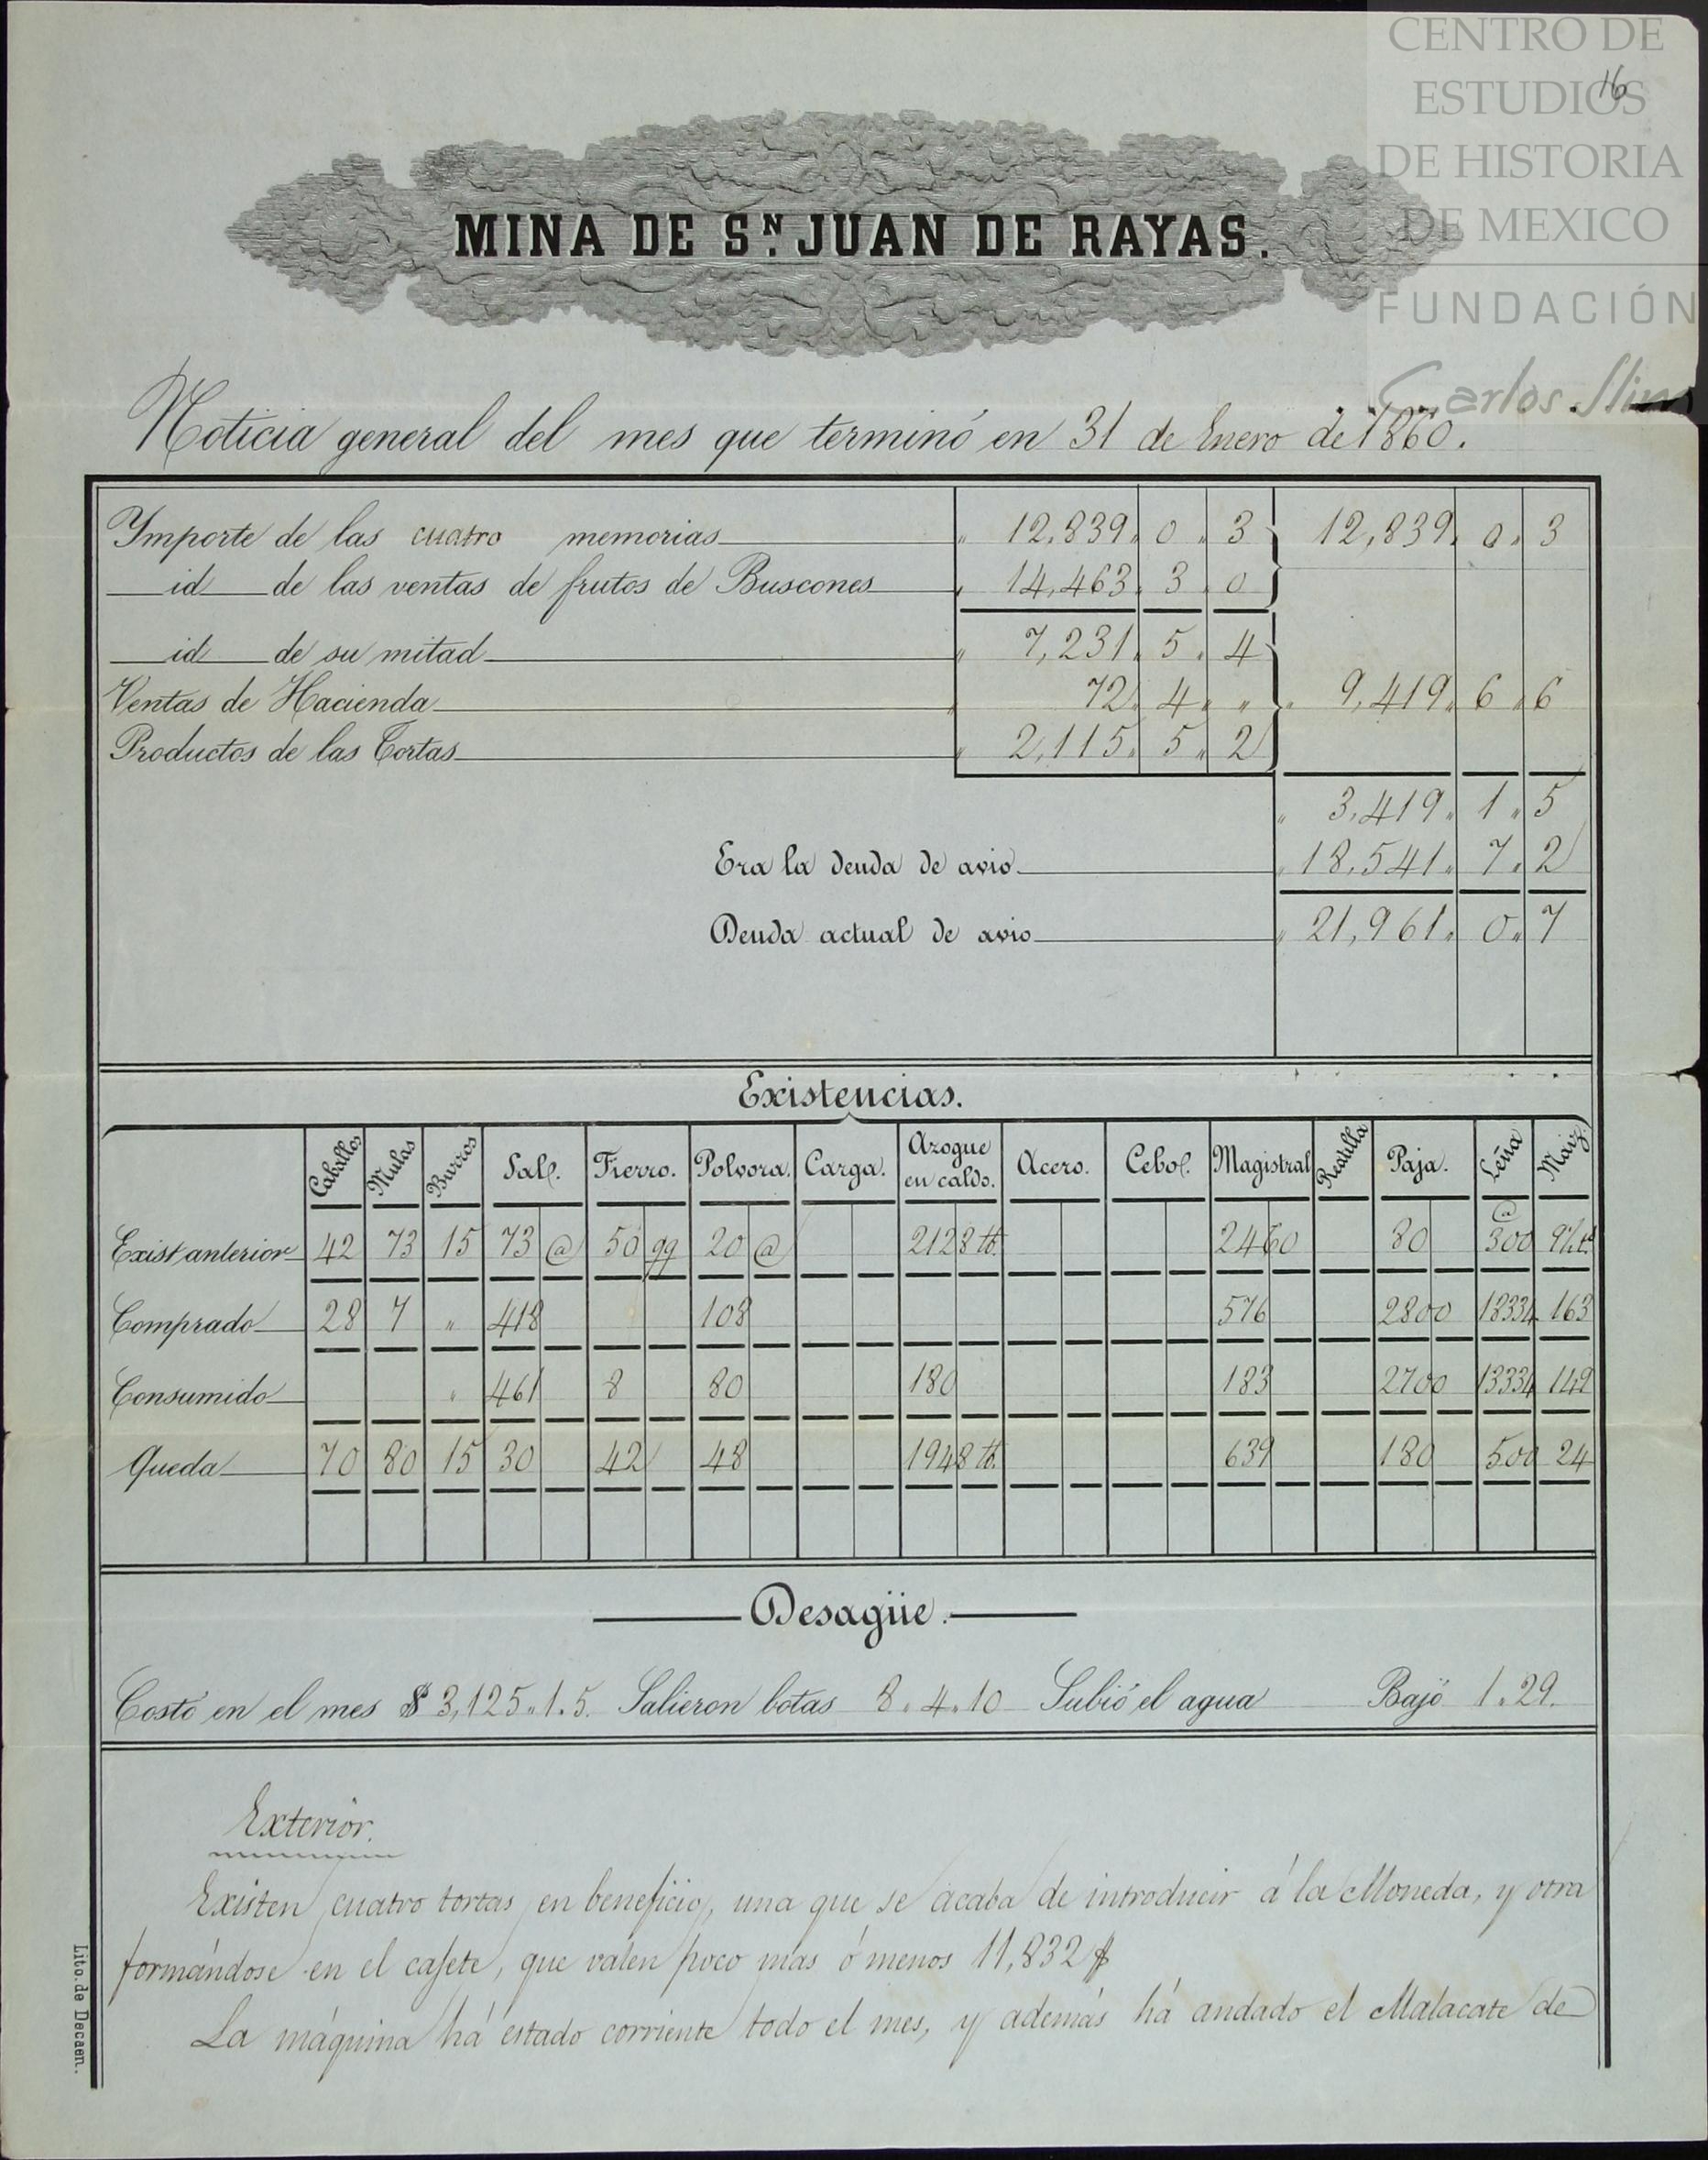 CENTRO DE
ESTUDIOS
DE HISTORIA
DE MEXICO
FUNDACIÓN
Carlos Slim
16
MINA DE SN. JUAN DE RAYAS.
Noticia general del mes que terminó en 31 de Enero de 1860.
Ymporte de las cuatro memorias " 12,839 " 0 " 3 12,839 " 0 " 3
id de las ventas de frutos de Buscones " 14,463 " 3 " 0
id de su mitad " 7,231 " 5 " 4
Ventas de Hacienda " 72 " 4 " " " 9,419 " 6 " 6
Productos de las Tortas " 2,115 " 5 " 2
" 3,419 " 1 " 5
Era la deuda de avio " 18,541 " 7 " 2
Deuda actual de avio " 21,961 " 0 " 7
Existencias.
Caballos Mulas Burros Sal. Fierro. Polvora. Carga. Azogue en caldo. Acero. Cebo. Magistral Realilla Paja. Leña Maiz.
Exist anterior 42 73 15 73 @ 50 qq 20 @ 2128 lb. 2460 80 @ 300
Comprado 28 7 " 418 108 576 2800 13334 163
Consumido " 461 8 80 180 183 2700 13334 149
Queda 70 80 15 30 42 48 1948 lb. 639 180 500 24
Desagüe.
Costó en el mes $ 3,125 " 1 . 5. Salieron botas 8 . 4 . 10 Subió el agua Bajó 1 . 29.
Exterior.
Existen cuatro tortas en beneficio, una que se acaba de introducir á la Moneda, y otra
formándose en el cajete, que valen poco mas ó menos 11,832 $
La máquina há estado corriente todo el mes, y además há andado el Malacate de
Lito. de Decaen.